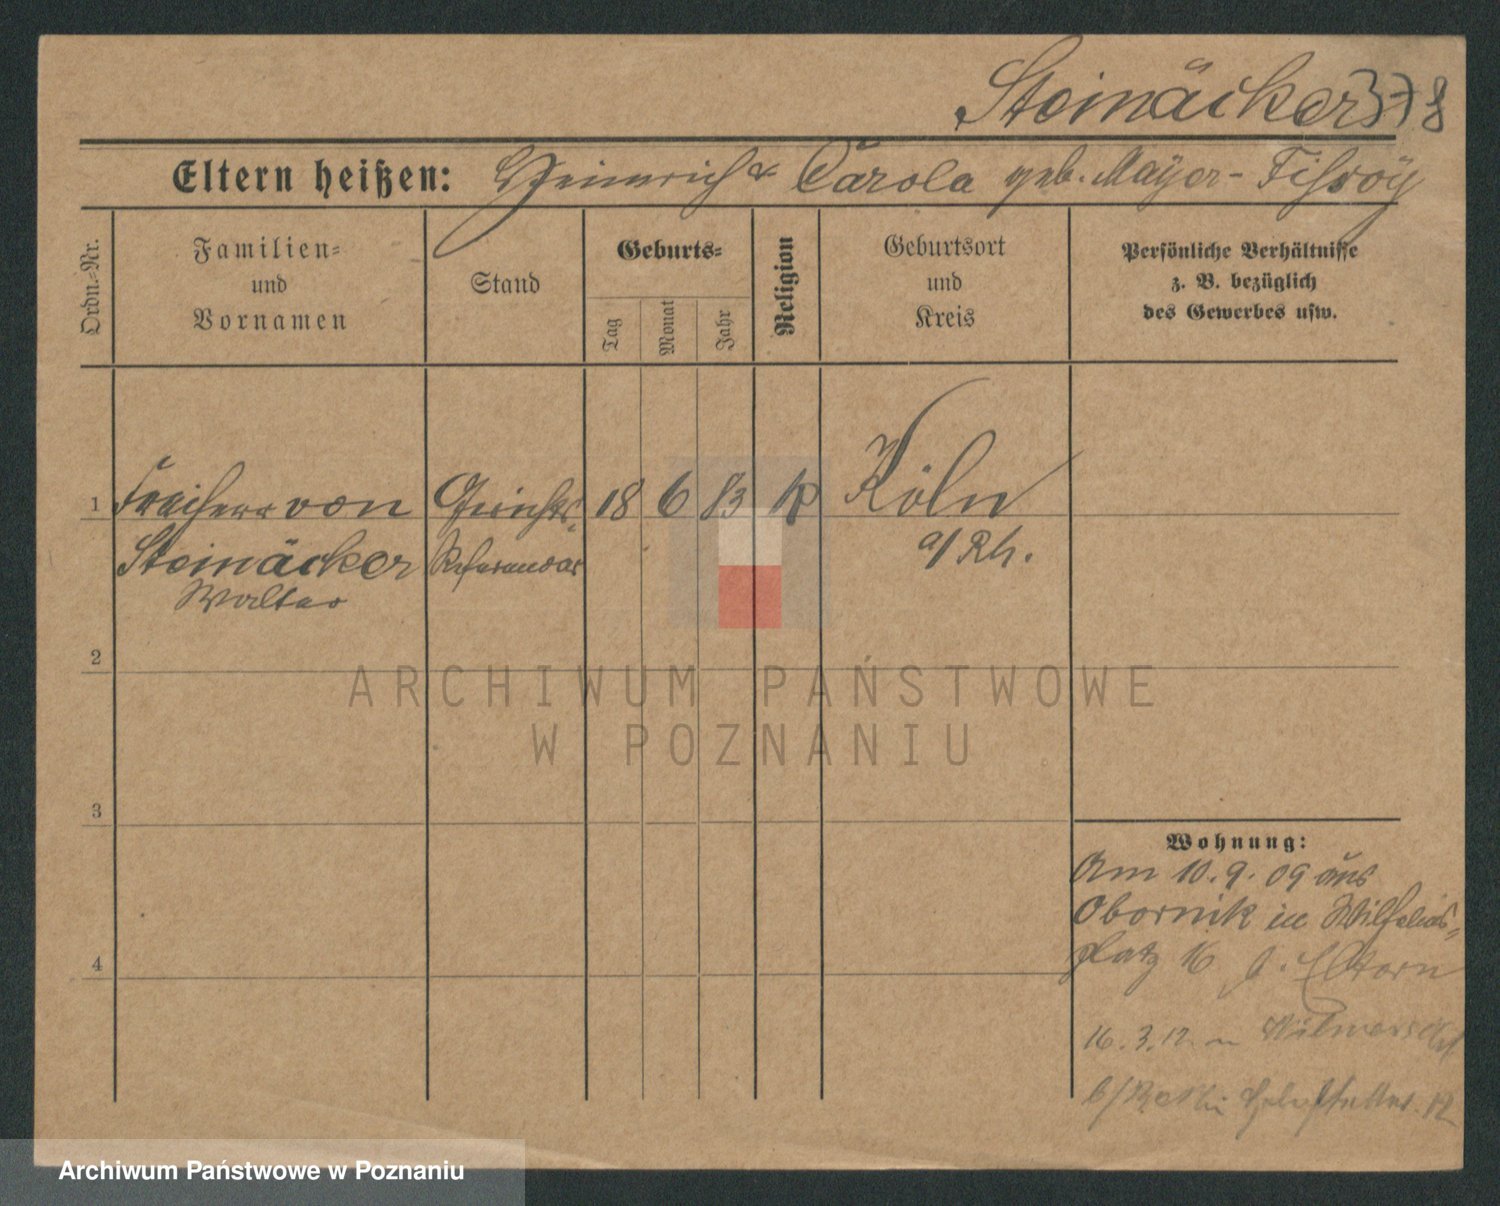 Steinäcker
Eltern heißen: Heinrich & Carola geb. Mayer-
Ordn.-Nr.
Familien-
und
Vornamen
Stand
Geburts-
Tag
Monat
Jahr
Religion
Geburtsort
und
Kreis
Persönliche Verhältnisse
z. B. bezüglich
des Gewerbes usw.
1 Freiherr von Gerichts- 18 6 83 k Köln
Steinäcker Referendar a/Rh.
Walter
2
3
4
Wohnung:
Am 10.9.09 aus
Obornik in Wilhelms-
platz 16 b. Eltern
16.3.12 n Wilmersdorf
b/Berlin 12
ARCHIWUM PAŃSTWOWE
W POZNANIU
Archiwum Państwowe w Poznaniu